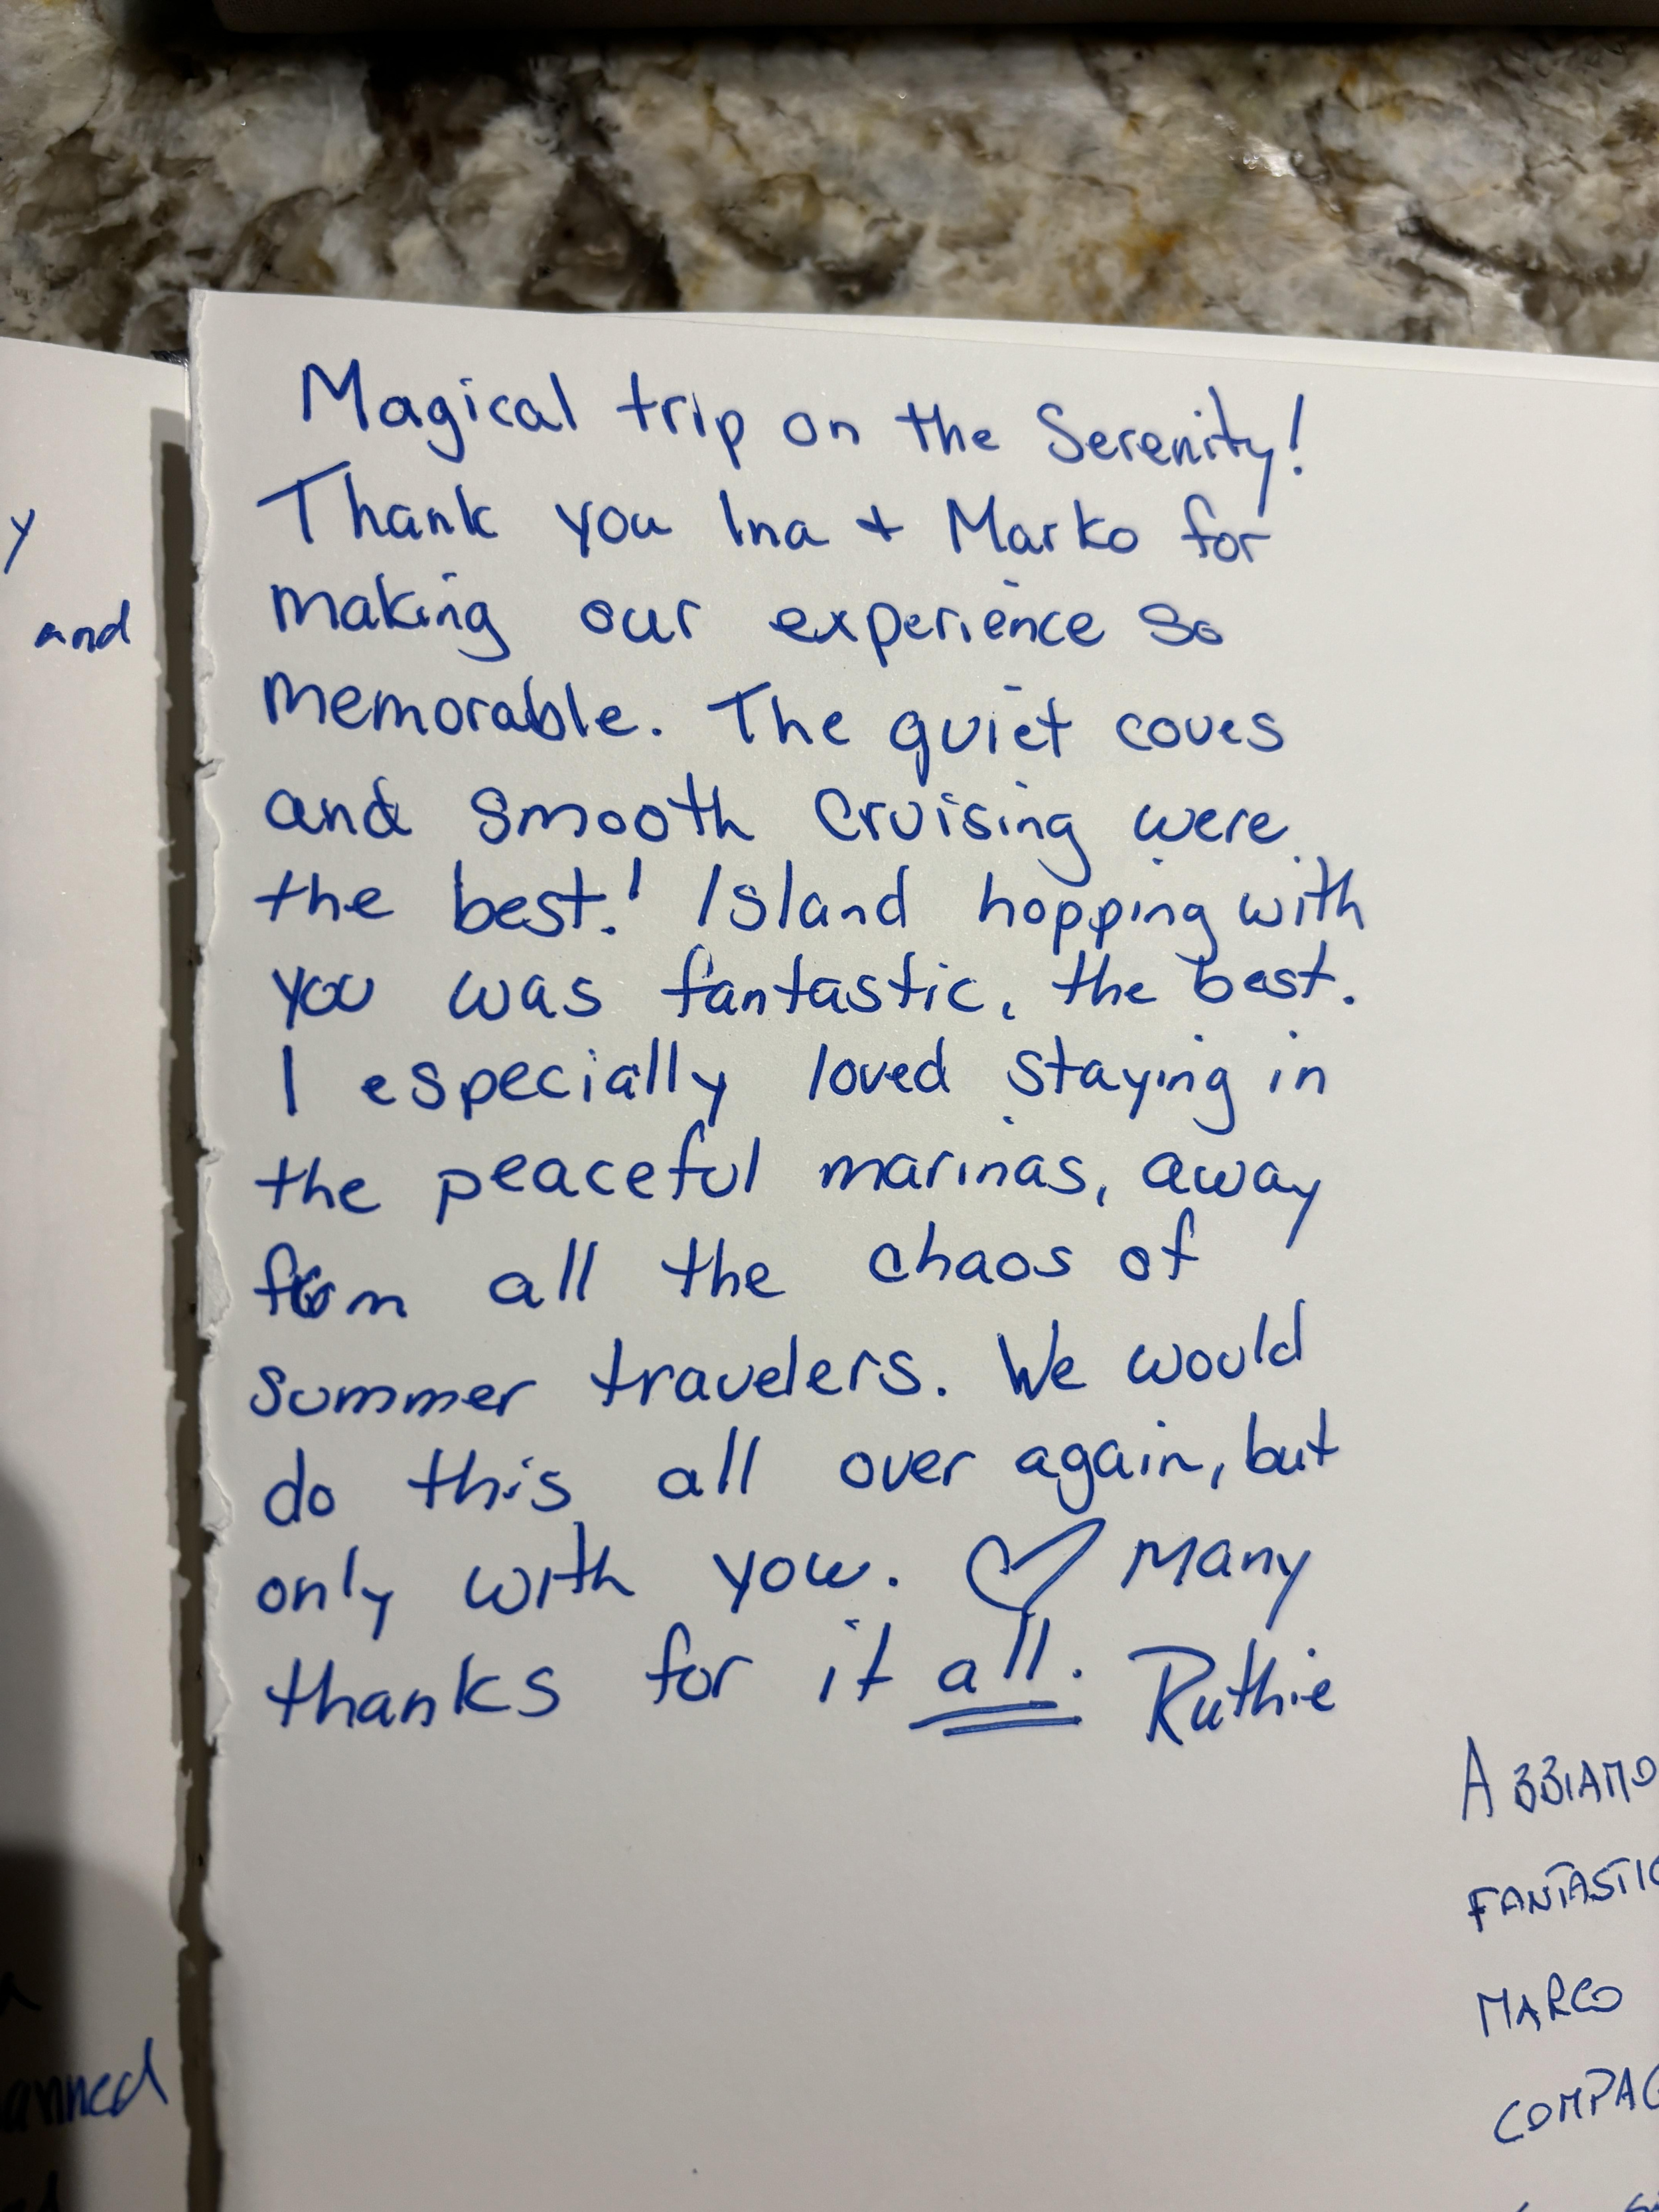 y
and
anned
Magical trip on the Serenity!
Thank you Ina + Marko for
making our experience so
memorable. The quiet coves
and smooth cruising were
the best! Island hopping with
you was fantastic, the best.
I especially loved staying in
the peaceful marinas, away
from all the chaos of
summer travelers. We would
do this all over again, but
only with you. ♡ Many
thanks for it all. Ruthie
ABBIAMO
FANTASTIC
MARCO
COMPAG